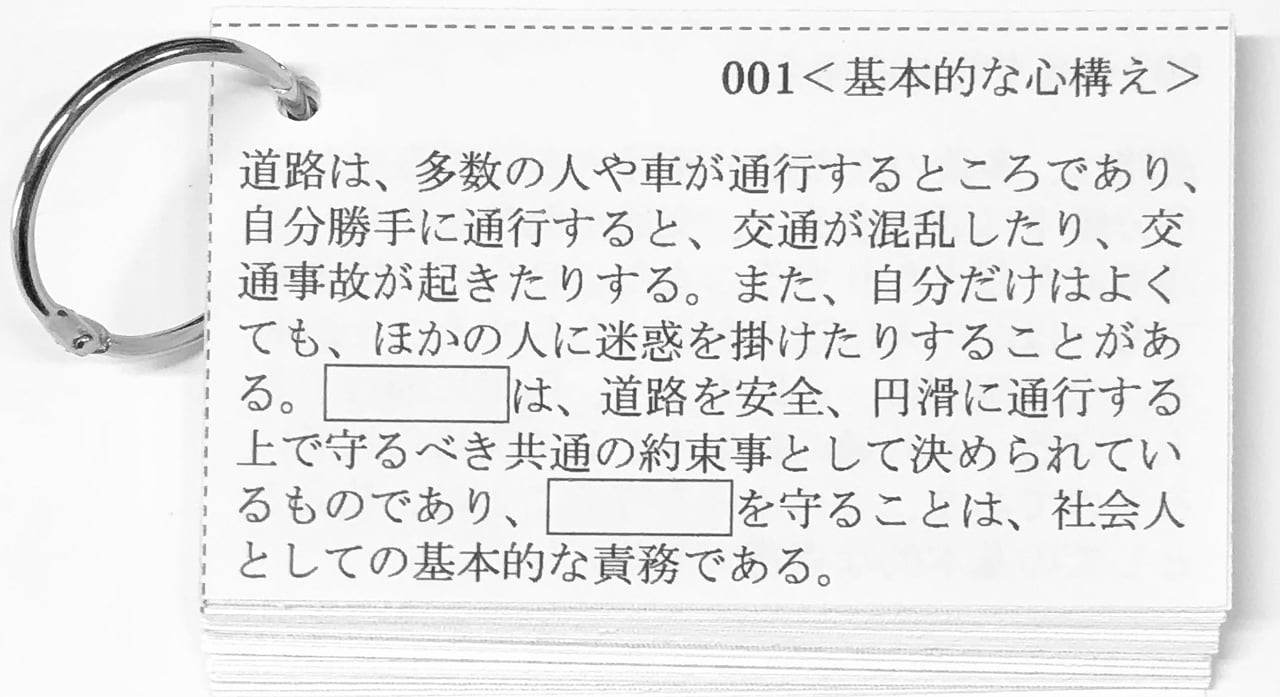 001＜基本的な心構え＞
道路は、多数の人や車が通行するところであり、
自分勝手に通行すると、交通が混乱したり、交
通事故が起きたりする。また、自分だけはよく
ても、ほかの人に迷惑を掛けたりすることがあ
る。は、道路を安全、円滑に通行する
上で守るべき共通の約束事として決められてい
るものであり、を守ることは、社会人
としての基本的な責務である。